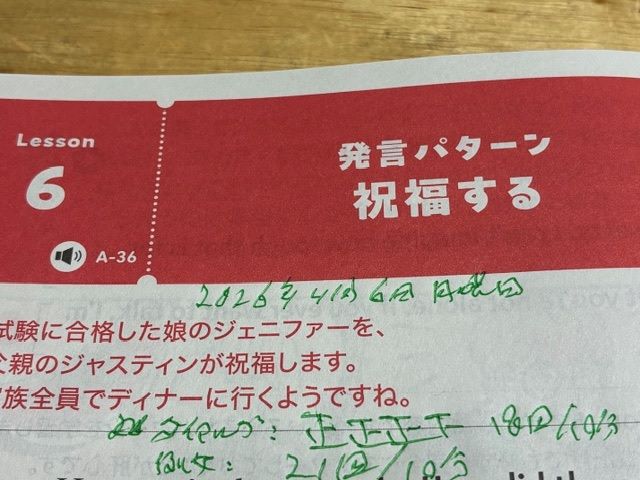 Lesson
6
A-36
発言パターン
祝福する
2026年4月6日 月曜日
試験に合格した娘のジェニファーを、
父親のジャスティンが祝福します。
家族全員でディナーに行くようですね。
正正正下 18回/10分
21回/10分